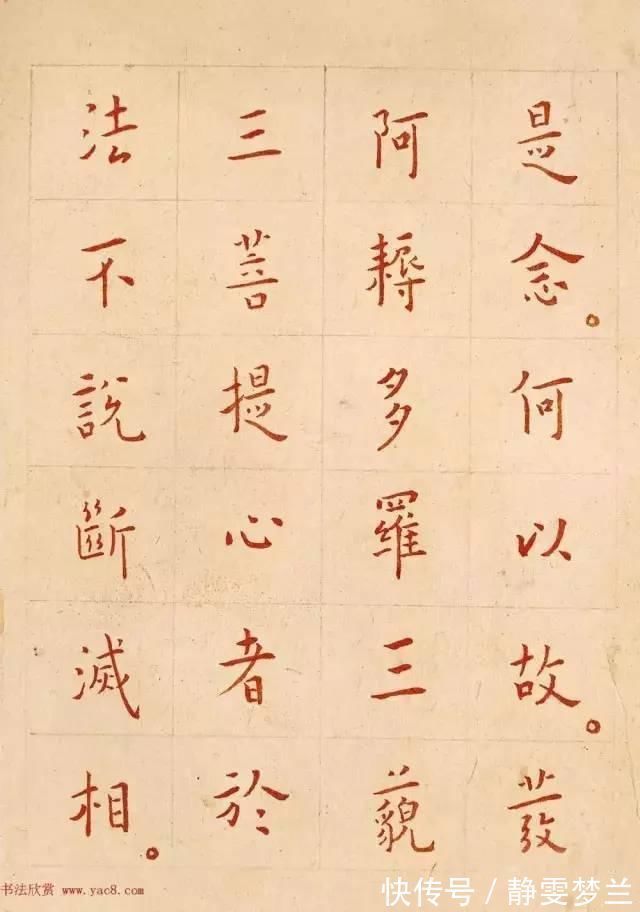 是念。何以故。發
阿耨多羅三藐
三菩提心者於
法不說斷滅相。
书法欣赏 www.yac8.com
快传号/静雯梦兰